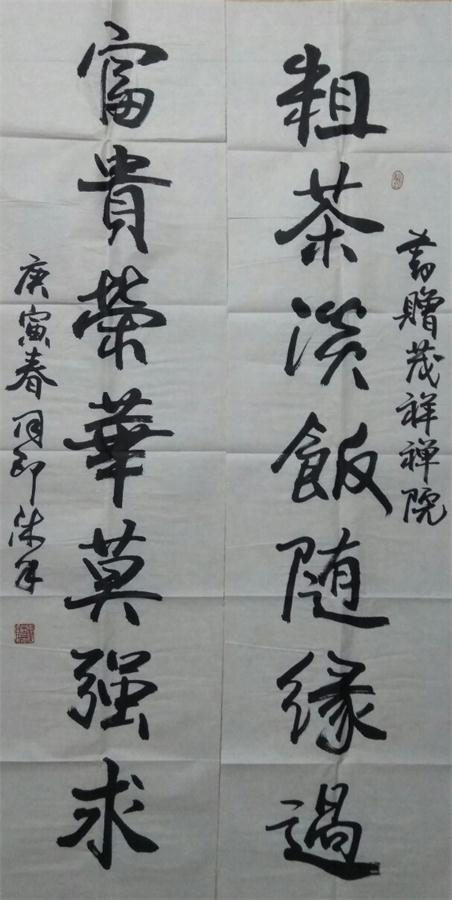 敬贈茂祥禅院
粗茶淡飯随缘過
富貴榮華莫强求
庚寅春月